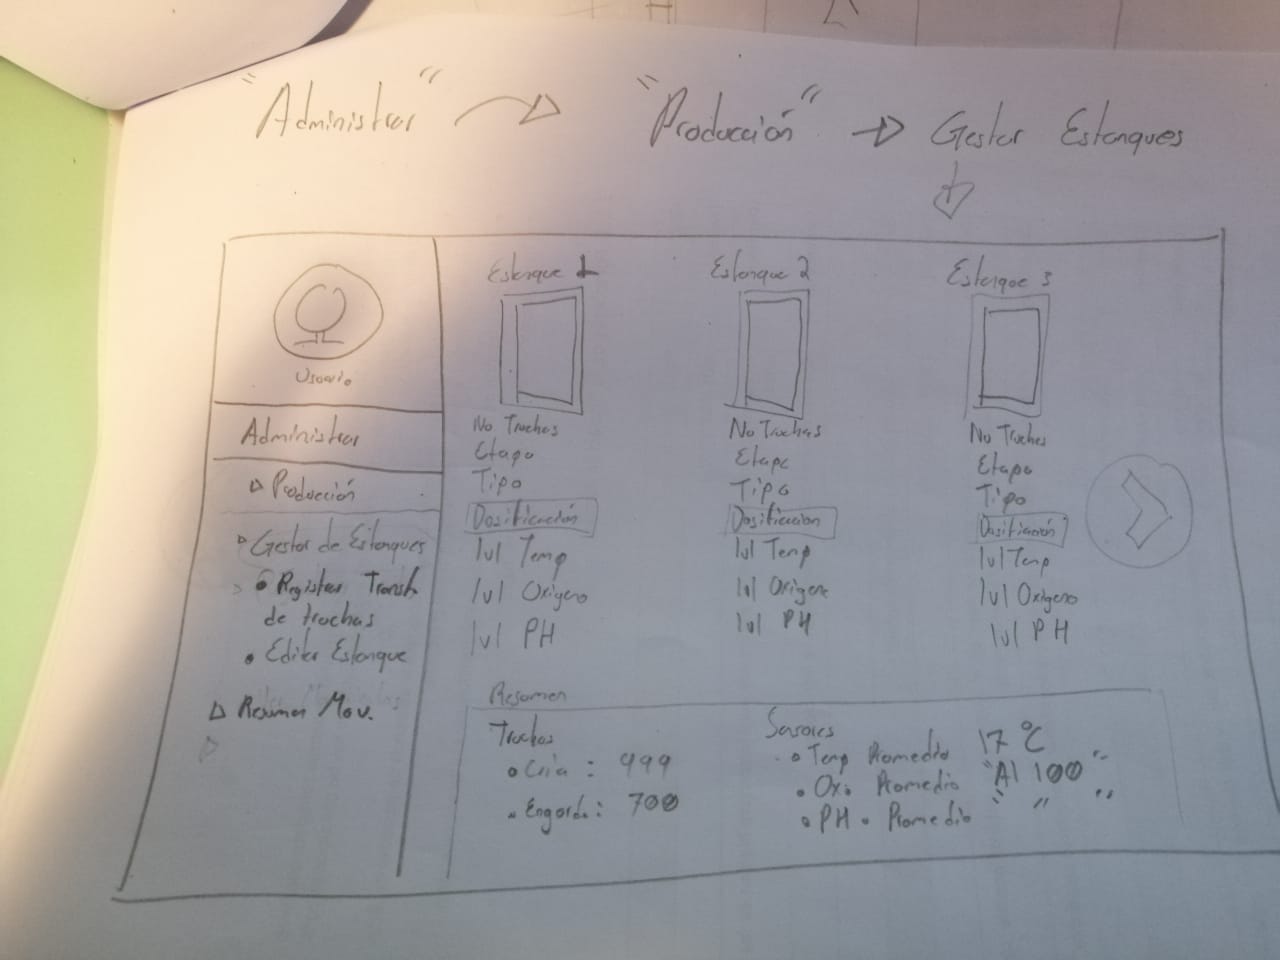 "Administrar" "Producción" Gestor Estanques
Usuario
Administrar
Producción
Gestor de Estanques
Registrar Transf.
de truchas
Editar Estanque
Resumen Mov.
Estanque 1
No Truchas
Etapa
Tipo
Dosificación
lvl Temp
lvl Oxigeno
lvl PH
Estanque 2
No Truchas
Etapa
Tipo
Dosificacion
lvl Temp
lvl Oxigeno
lvl PH
Estanque 3
No Truchas
Etapa
Tipo
Dosificación
lvl Temp
lvl Oxigeno
lvl PH
Resumen
Truchas
Cria : 999
Engorda: 700
Sensores
Temp Promedio 17 °C
Oxi. Promedio "Al 100"
PH. Promedio " "